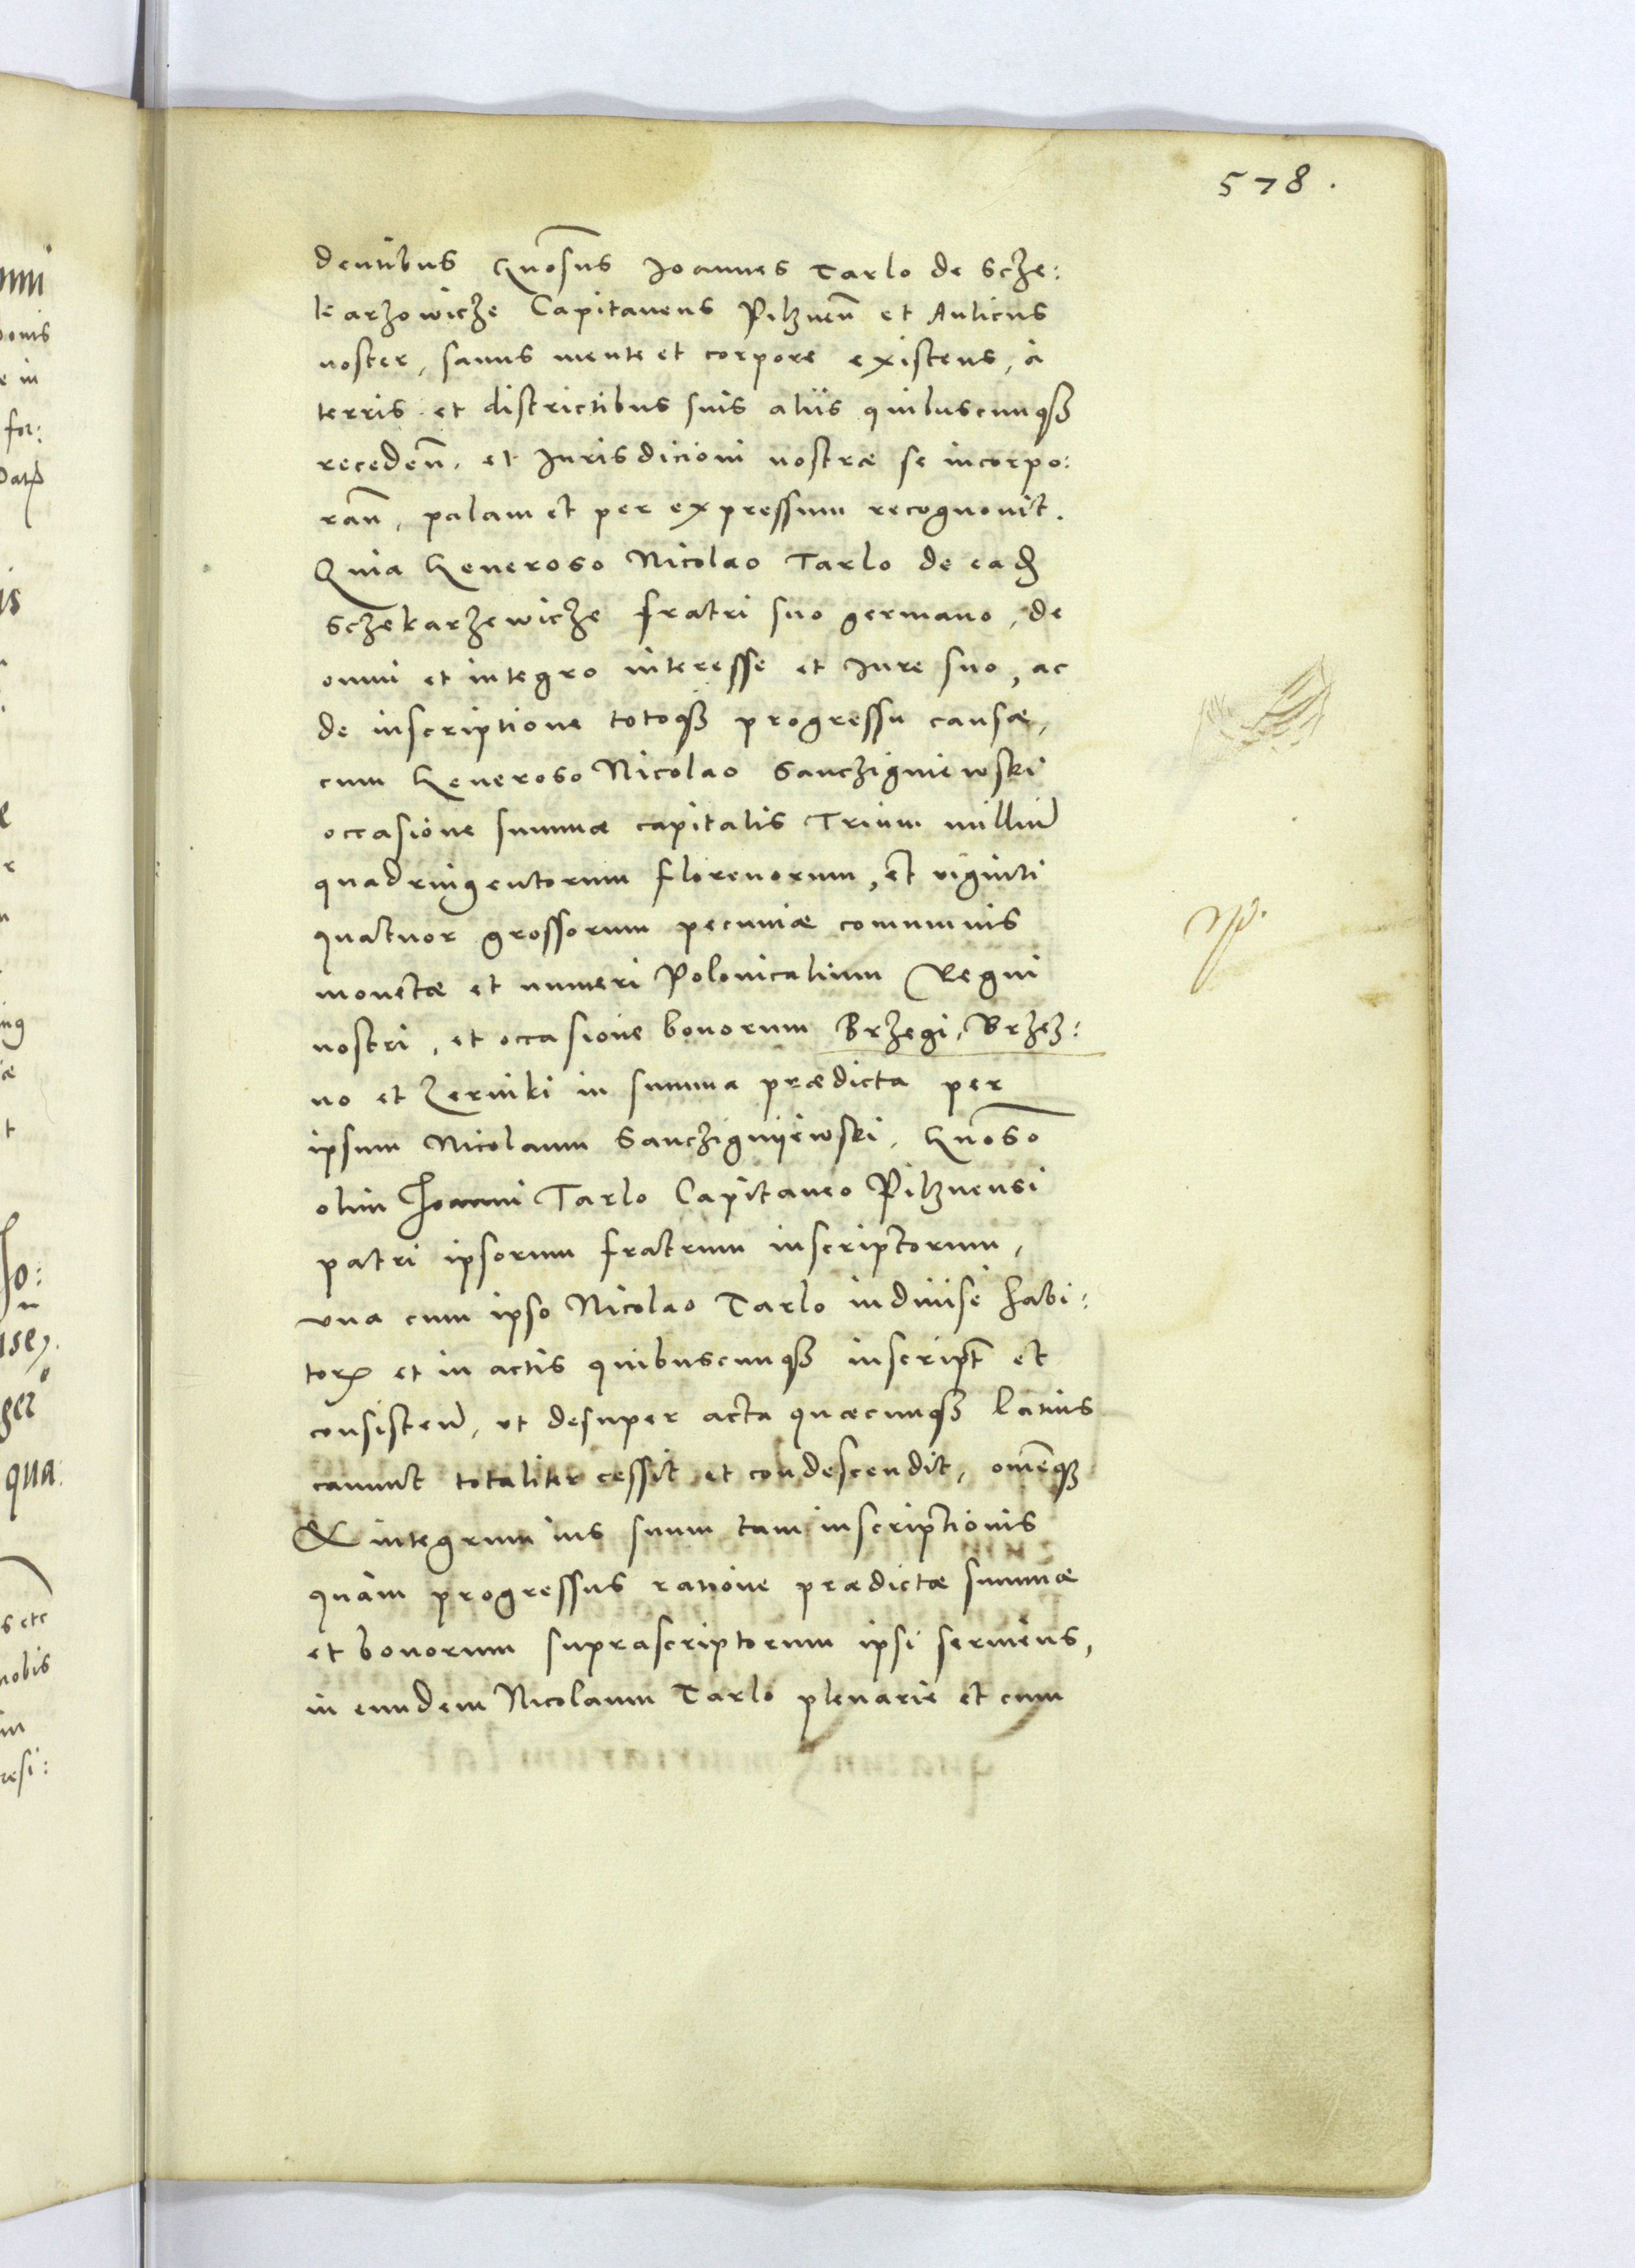 578.
dentibus Gnosus Joannes Tarlo de Scze:
karzowicze Capitaneus Pilznen̄ et Aulicus
noster, sanus mente et corpore existens, à
terris et districtibus suis aliis quibuscunqȝ
receden̄. et Jurisdicioni nostræ se incorpo:
ran̄, palam et per expressum recognovit.
Quia Generoso Nicolao Tarlo de ead
Sczekarzewicze fratri suo germano, de
omni et integro interesse et Jure suo, ac
de inscriptione totoqȝ progressu causæ,
cum Generoso Nicolao Sanczigniewski
occasione summæ capitalis Trium milliu
quadringentorum florenorum, et viginti
quatuor grossorum pecuniæ communis
monetæ et numeri Polonicalium Regni
nostri, et occasione bonorum Brzegi, Brzez:
no et Zerniki in summa prædicta per
ipsum Nicolaum Sanczignijewski, Gnoso
olim Joanni Tarlo Capitaneo Pilznensi
patri ipsorum fratrum inscriptorum,
una cum ipso Nicolao Tarlo indivise habi:
torꝝ et in actis quibuscunqȝ inscript et
consisten̄, ut desuper acta quæcunqȝ latius
canunt totaliter cessit et condescendit, omēqȝ
& integrum ius suum tam inscriptionis
quàm progressus ratione prædictæ summæ
et bonorum suprascriptorum ipsi serviens,
in eundem Nicolaum Tarlo plenarie et cum